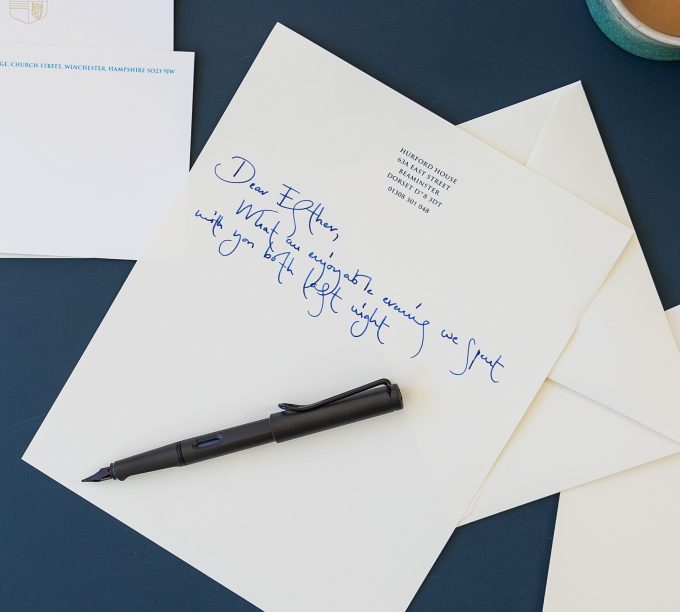 GE, CHURCH STREET, WINCHESTER, HAMPSHIRE SO23 9JW
HURFORD HOUSE
63A EAST STREET
BEAMINSTER
DORSET D78 3DT
01308 301 048
Dear Esther,
What an enjoyable evening we spent
with you both last night